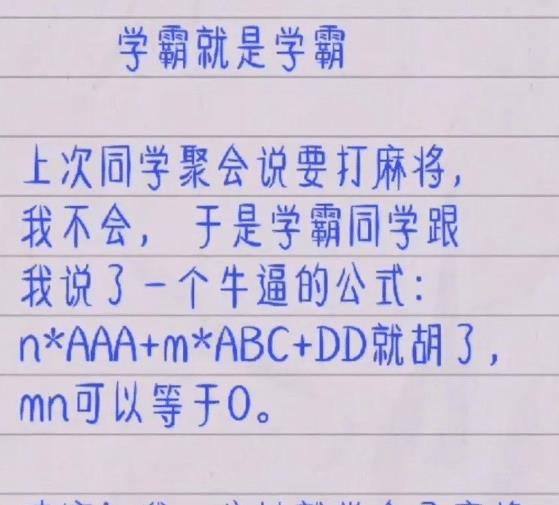 学霸就是学霸
上次同学聚会说要打麻将，
我不会， 于是学霸同学跟
我说了一个牛逼的公式：
n*AAA+m*ABC+DD就胡了，
mn可以等于0。